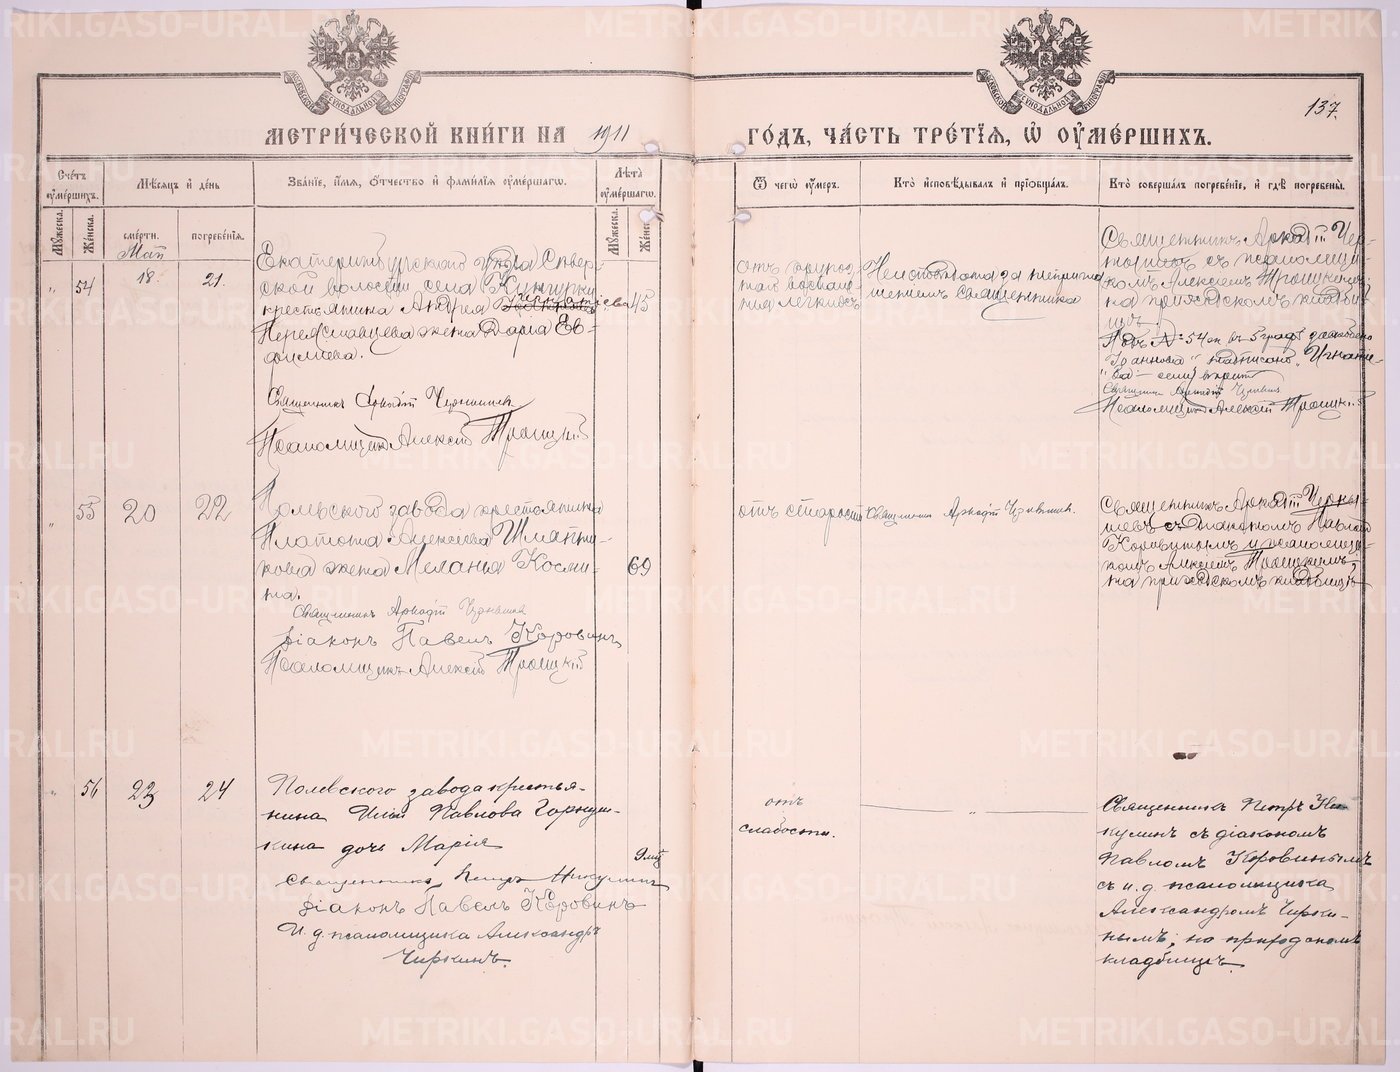 МЕТРИ́ЧЕСКОЙ КНИ́ГИ НА 1911 ГО́ДЪ, ЧА́СТЬ ТРЕ́ТІѦ, Ѡ ОУМЕ́РШИХЪ.
137.
Сче́тъ оуме́ршихъ.
Мꙋ́жеска.
Же́нска.
Мѣсѧцъ и де́нь
сме́рти.
погребе́нїѧ.
Зва́нїе, и́мѧ, ѻ́тчество и фами́лїѧ оуме́ршагѡ.
Лѣ́та оуме́ршагѡ.
Мꙋ́жеска.
Же́нска.
Ѿ чегѡ̀ оу́меръ.
Кто̀ и҆сповѣ́дывалъ и прїобща́лъ.
Кто̀ соверша́лъ погребе́нїе, и гдѣ̀ погребены̀.
Май
" 54 18. 21.
Екатеринбургскаго уѣзда Сѣвер-
ской волости села Кунгурки
крестьянина Андрея Игнатіева
Переславцева жена Дарія Ев-
фиміева.
45
Священникъ Аркадій Чернышевъ
Псаломщикъ Алексій Троицкій
отъ крупоз-
наго воспале-
нія легкихъ
Неисповѣдана за непригла-
шеніемъ священника
Священникъ Аркадій Чер-
нышевъ съ псаломщи-
комъ Алексіемъ Троицкимъ
на приходскомъ кладби-
щѣ
Подъ № 54 въ 5 графѣ
"Іоаннова" надписано "Игнатіе-
ва"
Священникъ Аркадій Чернышевъ
Псаломщикъ Алексій Троицкій
" 55 20 22
Полевского завода крестьянина
Платона Алексѣева Шляпни-
кова жена Меланья Косми-
на.
69
Священникъ Аркадій Чернышевъ
діаконъ Павелъ Коровинъ
Псаломщикъ Алексій Троицкій
отъ старости
Священникъ Аркадій Чернышевъ.
Священникъ Аркадій Черны-
шевъ съ діакономъ Павломъ
Коровинымъ и псаломщи-
комъ Алексіемъ Троицкимъ,
на приходскомъ кладбищѣ
" 56 23 24
Полевского завода крестья-
нина Иліи Павлова Горнуш-
кина дочь Марія
9 мѣс
Священникъ Петръ Никулинъ
діаконъ Павелъ Коровинъ
И. д. псаломщика Александръ
Чиркинъ.
отъ
слабости.
"
Священникъ Петръ Ни-
кулинъ съ діакономъ
Павломъ Коровинымъ
съ и. д. псаломщика
Александромъ Чирки-
нымъ, на приходскомъ
кладбищѣ.
METRIKI.GASO-URAL.RU